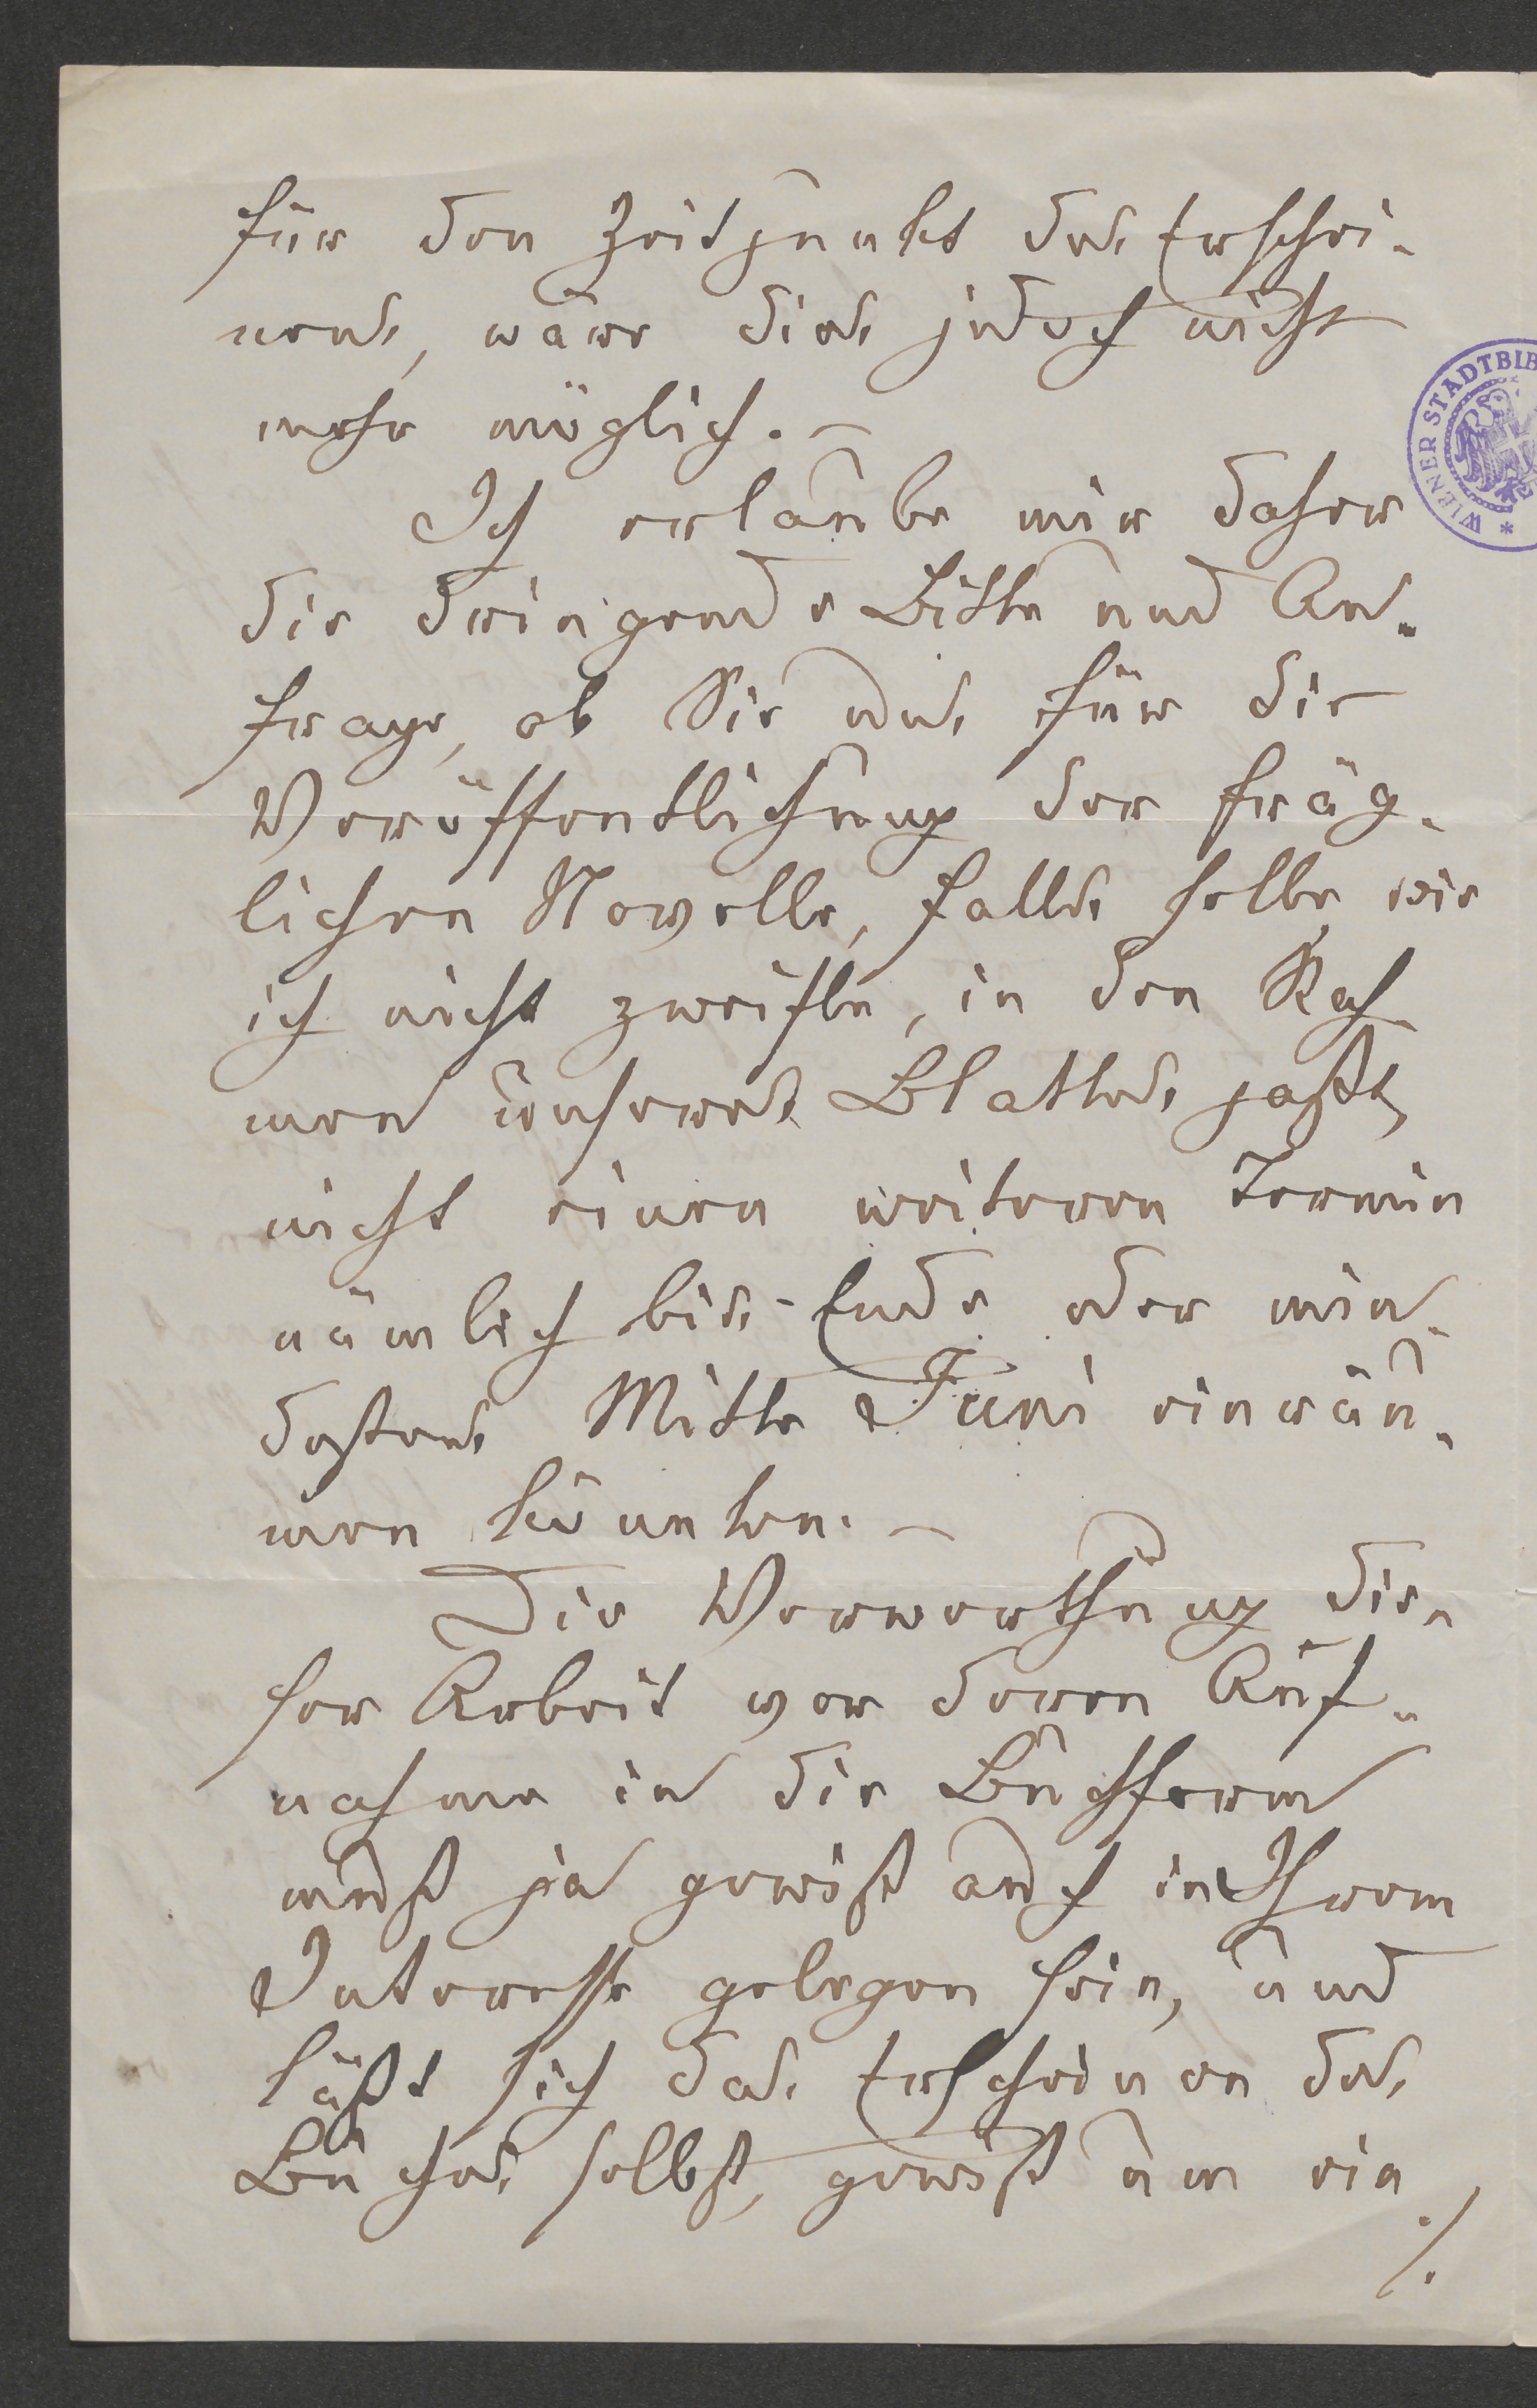 für den Zeitpunkt des Erschei-
nens, wäre dies jedoch nicht
mehr möglich. –
Ich erlaube mir daher
die dringende Bitte und An-
frage, ob Sie uns für die
Veröffentlichung der fräg-
lichen Novelle, falls selbe, wie
ich nicht zweifle, in den Rah-
men unseres Blattes paßt,
nicht einen weiteren Termin
nämlich bis Ende oder min-
destens Mitte Juni einräu-
men könnten. –
Die Verwerthung die-
ser Arbeit vor deren Auf-
nahme in die Buchform
muß ja gewiß auch in Ihrem
Interesse gelegen sein, und
läßt sich das Erscheinen des
Buches selbst, gewiß um ein
./.
WIENER STADTBIB